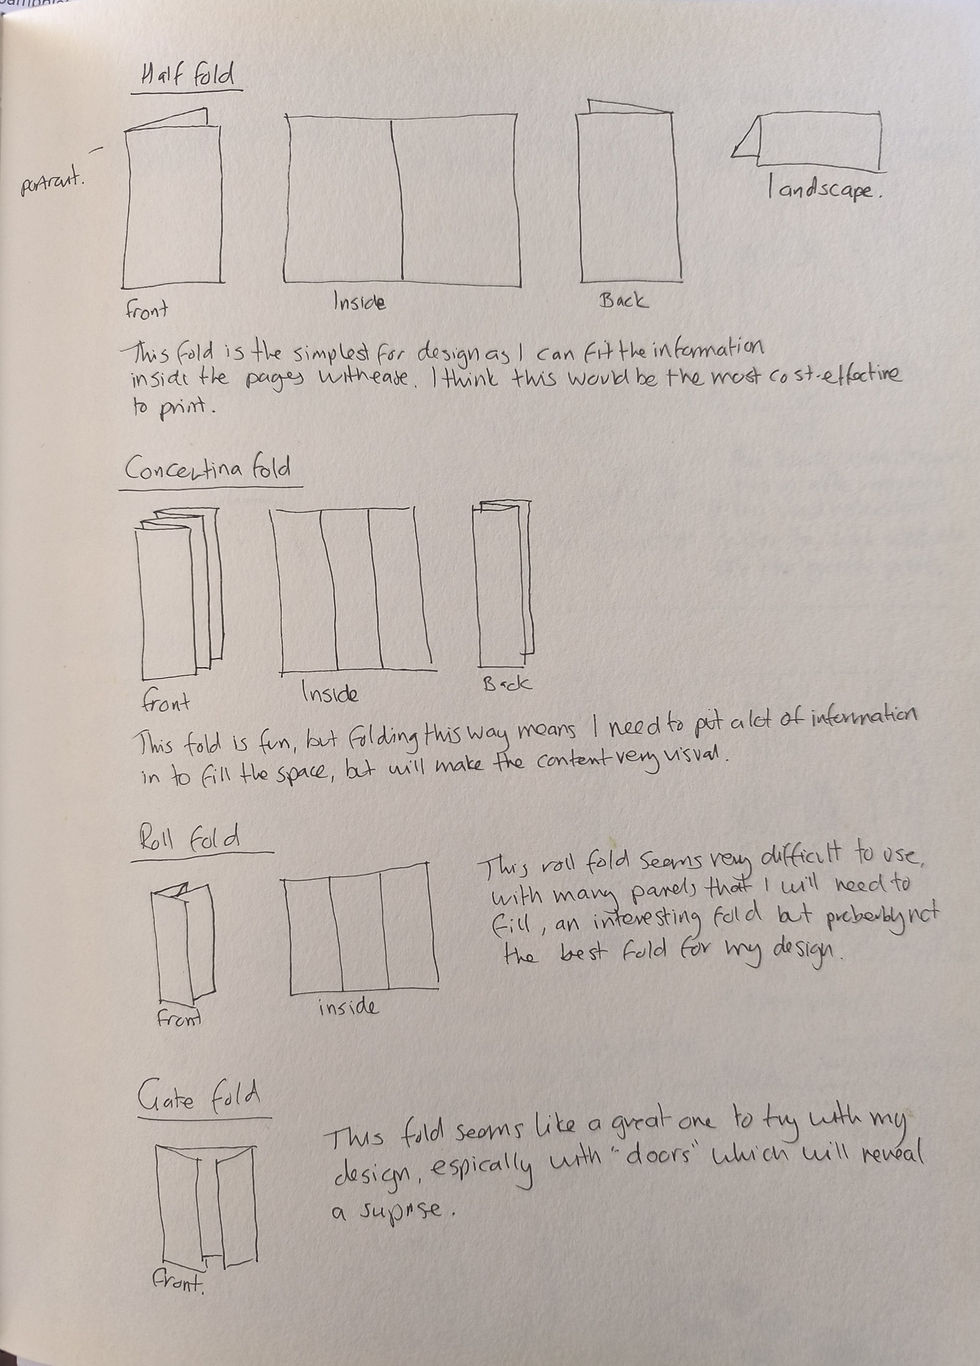 Half fold
portrait.
front
Inside
Back
landscape.
This fold is the simplest for design as I can fit the information
inside the pages with ease. I think this would be the most cost-effective
to print.
Concertina fold
front
Inside
Back
This fold is fun, but folding this way means I need to put a lot of information
in to fill the space, but will make the content very visual.
Roll fold
front
inside
This roll fold seems very difficult to use,
with many panels that I will need to
fill, an interesting fold but proberbly not
the best fold for my design.
Gate fold
front.
This fold seems like a great one to try with my
design, espically with "doors" which will reveal
a suprise.